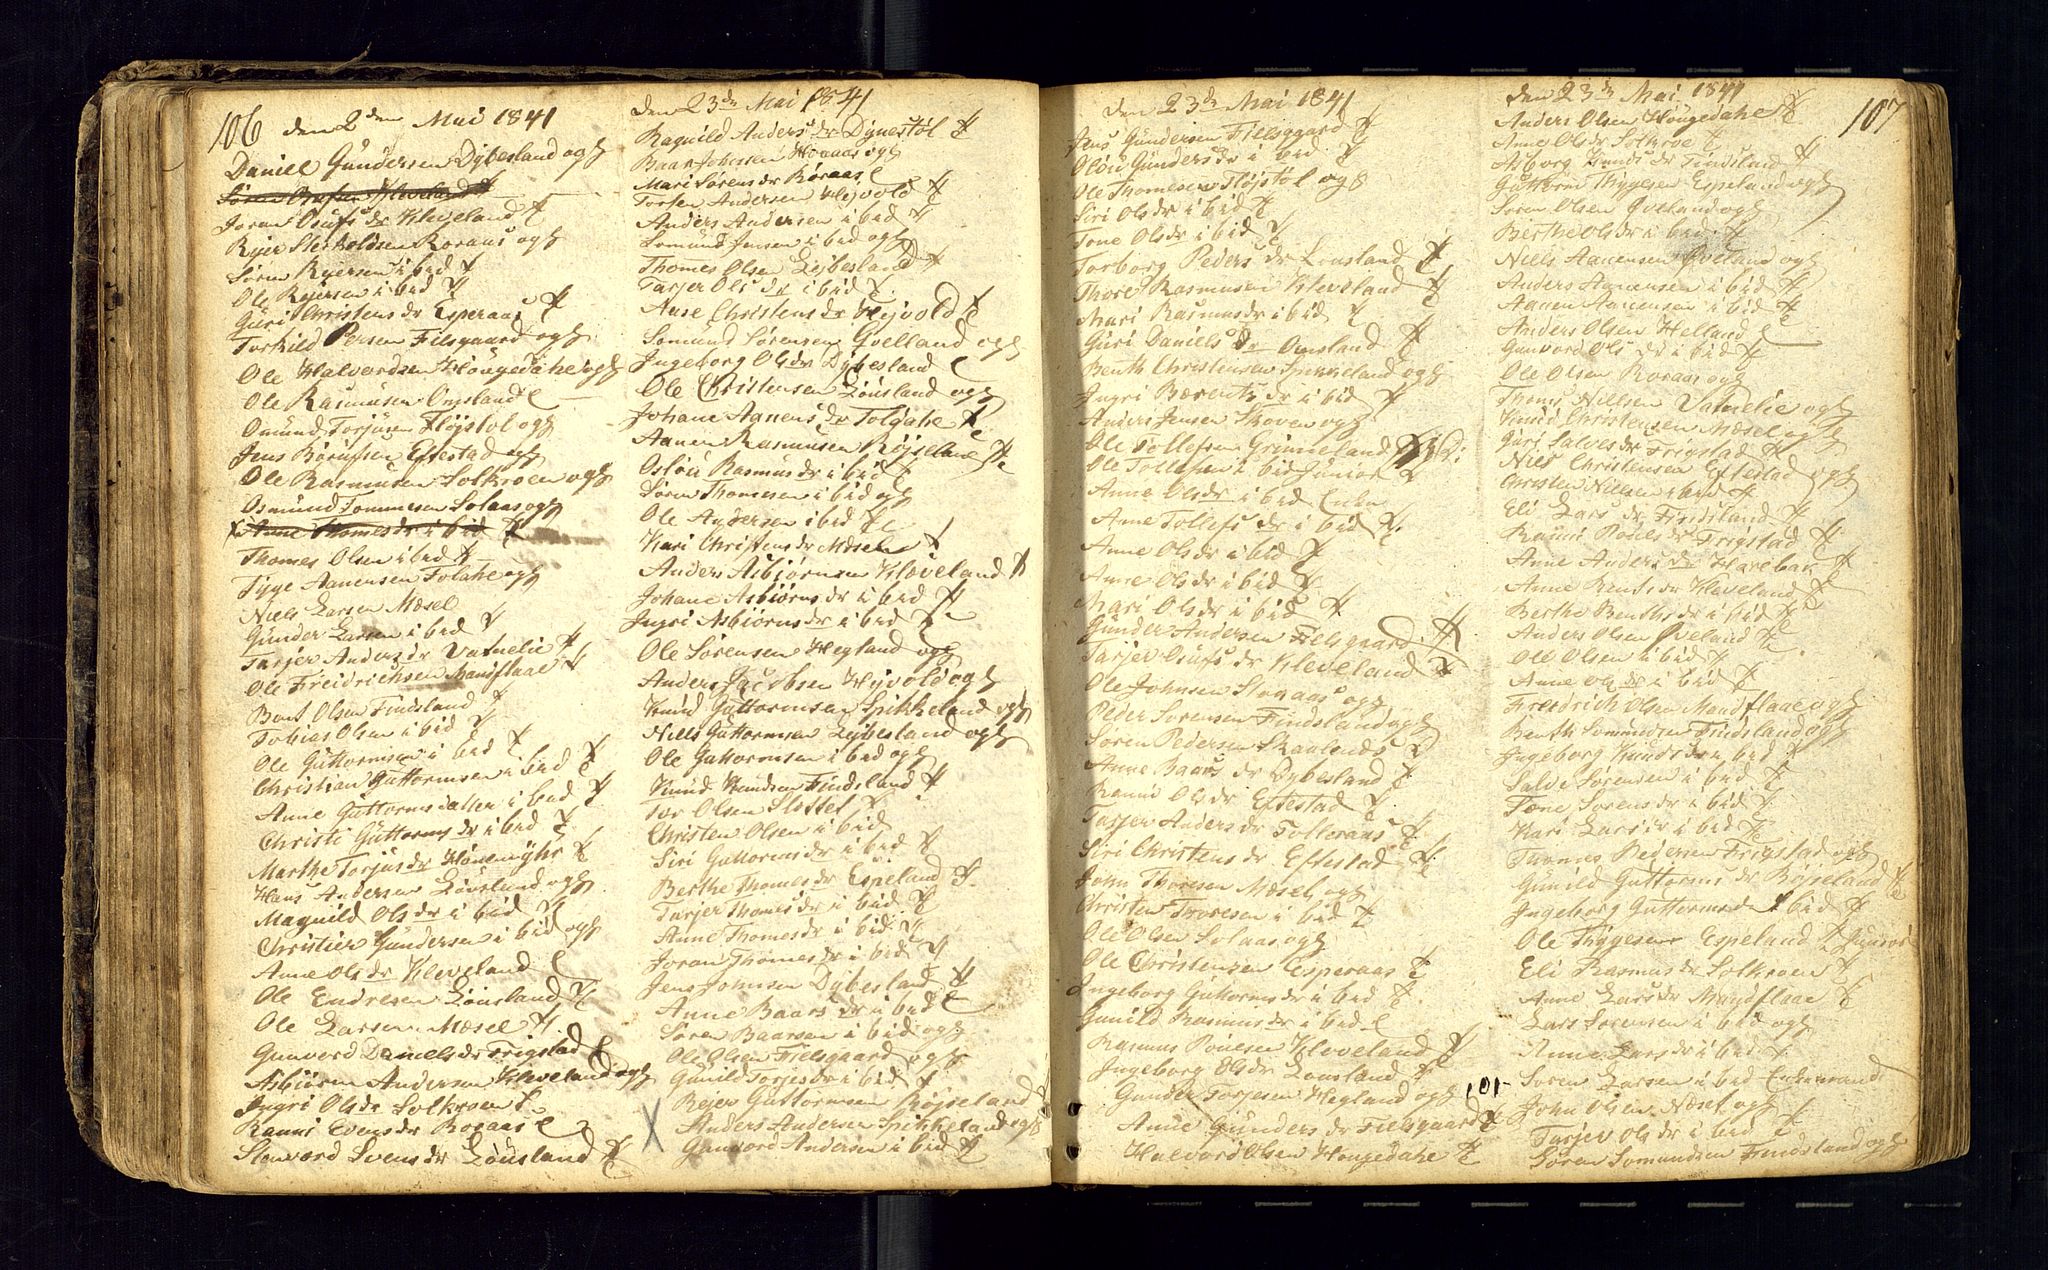 106
den 2den Mai 1841
Daniell Gundersen Dybesland og
Søren Osufsen Kleveland
Joran Osufs dr Kleveland
Rejer Roraas og
Søren Rejersen i bid
Ole Rejersen i bid
Guri Christens dr Esperaas
Torkild Persen Fielsgaard og
Ole Halvordsen Hougedahe og
Ole Rasmusen Omsland
Omund Torjusen Fløjstol og
Jens Børufsen Eftestad og
Ole Rasmusen Solkroen og
Osmund Tommesen Solaas og
Anne Thomes dr i bid
Thomes Olsen i bid
Tyge Aanensen Folahe og
Niels Larsen Mæsel
Gunder Larsen i bid
Tarjer Anders dr Vatnelie
Ole Freidrichsen Mandflaae
Bent Olsen Findsland
Tobias Olsen i bid
Ole Guttormsen i bid
Christian Guttormsen i bid
Anne Guttorms datter i bid
Christi Guttorms dr i bid
Marthe Torjus dr Hønemyhr
Hans Andersen Lousland og
Magnild Ols dr i bid
Christien Gundersen i bid og
Anne Ols dr Kleveland
Ole Endresen Lousland
Ole Larsen Mæsel
Gunvord Daniels dr Frigstad
Asbiørn Andersen Kleveland og
Ingri Ols dr Solkroen
Ranni Evens dr Roraas
Svens dr Lousland
den 23de Mai 1841
Ragnild Anders dr Dynestøl
Baar Johnsen Horaas og
Mari Sørens dr Roraas
Torjer Andersen Hejvold
Anders Andersen i bid
Somund Jensen i bid og
Thomes Olsen Lejbesland
Tarjer Ols dr i bid
Anne Christens dr Hejvold
Somund Sørensen Qvelland og
Ingeborg Ols dr Dybesland
Ole Christensen Lousland og
Johane Aanens dr Tolgahe
Aanen Rasmusen Røjseland
Oslou Rasmus dr i bid
Søren Thomesen i bid og
Ole Andersen i bid
Kari Christens dr Mæsel
Anders Asbiørnsen Klæveland
Johane Asbiørns dr i bid
Ingri Asbiørns dr i bid
Ole Sørensen Hegland og
Anders Jacobsen Hejvold og
Knud Guttormsen Spikkeland og
Niels Guttormsen Lejbesland og
Ole Guttormsen i bid og
Knud Knudsen Findsland
Tor Olsen Slottet
Christen Olsen i bid
Siri Guttorms dr i bid
Berthe Thomes dr Espeland
Tarjer Thomes dr i bid
Anne Thomes dr i bid
Joran Thomes dr i bid
Jens Johnsen Dybesland
Anne Baars dr i bid
Søren Baarsen i bid og
Ole Olsen Fielsgaard og
Gunild Torjes dr i bid
Rejer Guttormsen Røjseland
Anders Andersen Spikkeland og
Gunvord Andersen i bid
den 23de Mai 1841
Jens Gundersen Fielsgaard
Olou Gunders dr i bid
Ole Thomesen Fløjstøl og
Siri Ols dr i bid
Tone Ols dr i bid
Torborg Peders dr Lousland
Thore Rasmusen Kleveland
Mari Rasmus dr i bid
Guri Daniels dr Omsland
Benth Christensen Spikkeland og
Ingri Bærents dr i bid
Anders Jensen Skoven og
Ole Tollefsen Grimeland
Ole Tollefsen i bid Junior
Anne Ols dr i bid Enke
Anne Tollefs dr i bid
Anne Ols dr i bid
Anne Ols dr i bid
Mari Ols dr i bid
Gunder Andersen Fielsgaard
Tarjer Osufs dr Kleveland
Ole Johnsen Storaas og
Peder Sørensen Findsland og
Søren Pedersen Skaalends
Anne Baars dr Dybesland
Ranni Ols dr Eftestad
Tarjer Anders dr Tolleraas
Siri Christens dr Eftestad
John Thoresen Mæsel og
Christen Thoresen i bid
Ole Olsen Solaas og
Ole Christensen Esperaas
Ingeborg Guttorms dr i bid
Gunild Rasmus dr i bid
Rasmus Povelsen Kleveland
Ingeborg Ols dr Lousland
Gunder Torjesen Hegland og
101
Anne Gunders dr Fielsgaard
Halvord Olsen Hougedahe
den 23de Mai 1841
107
Anders Olsen Hougedahe
Anne Ols dr Solkroe
Asborg Gunds dr Findsland
Guttorm Thygesen Espeland og
Søren Olsen Qveland og
Berthe Ols dr i bid
Niels Aanensen Qveland og
Anders Aanensen i bid
Aanen Aanensen i bid
Anders Olsen Helland
Gunvord Ols dr i bid
Ole Olsen Roraas og
Thomes Nillsen Vatnelie og
Knud Christensen Mæsel og
Guri Salves dr Frigstad
Niels Christensen Eftestad og
Christen Nillsen i bid
Eli Lars dr Findsland
Ranni Peders dr Frigstad
Anne Anders dr Harebak
Anne Bents dr Klæveland
Berthe Benths dr i bid
Anders Olsen Qveland
Ole Olsen i bid
Anne Ols dr i bid
Freidrich Olsen Mandflaae og
Benth Somundsen Findsland og
Ingeborg Knuds dr i bid
Salve Sørensen i bid
Tone Sørens dr i bid
Kari Lars dr i bid
Thomes Pedersen Frigstad og
Gunild Guttorms dr Røjseland
Ingeborg Guttorms dr i bid
Ole Thygesen Espeland
Eli Rasmus dr Solkroen
Anne Lars dr Mandflaae
Lars Sørensen i bid og
Anne Lars dr i bid
Søren Larsen i bid Enkemand
John Olsen Mæsel og
Tarjer Ols dr i bid
Søren Somundsen Findsland og